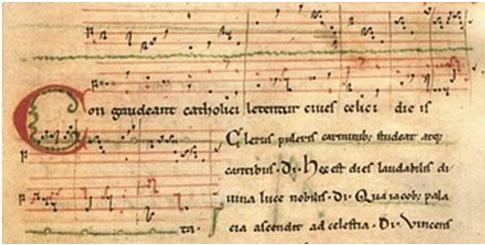 Congaudeant catholici letentur ciues celici die is
Clerus pulcris carminibz studeat atqz
cantibus. Di. Hec est dies laudabilis di
uina luce nobilis. Di. Qua iacob pala
ta. cia ascendit ad celestia. Di. Vincens